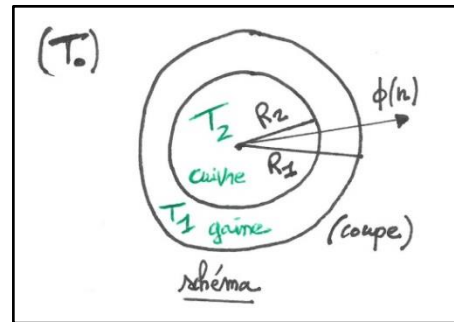 (T₀)
ϕ(r)
T₂
R₂
R₁
cuivre
T₁ gaine
(coupe)
schéma